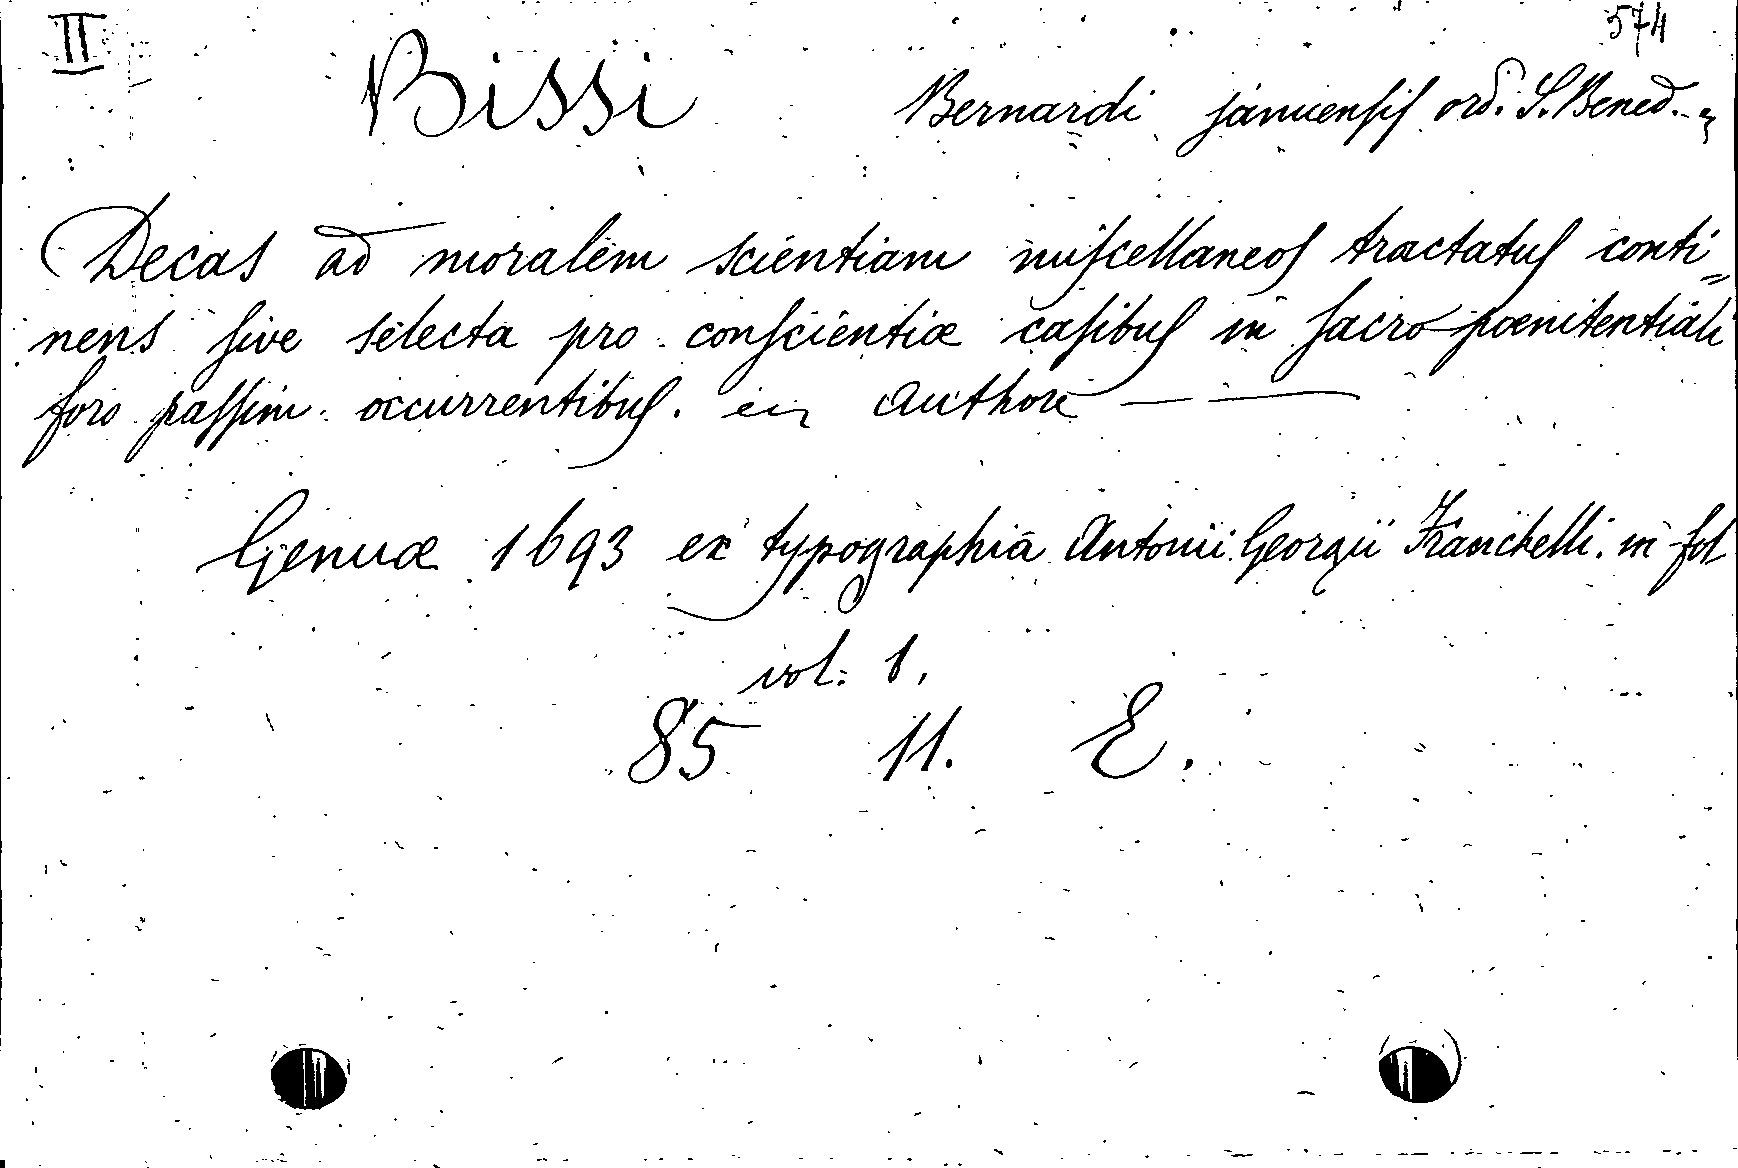 II 574
Bissi Bernardi januensis ord. S. Bened.
Decas ad moralem scientiam miscellaneos tractatus conti=
nens sive selecta pro conscientiæ casibus in sacro pœnitentiali
foro passim occurrentibus. authore —
Genuæ 1693 ex typographia Antonii Georgii Franchelli. in fol
vol: 1.
85 11. E.